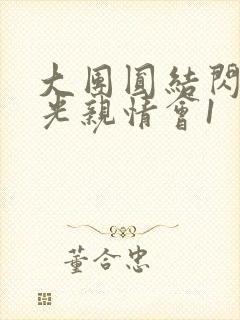 大團圓結閃
光親情會1
董合忠